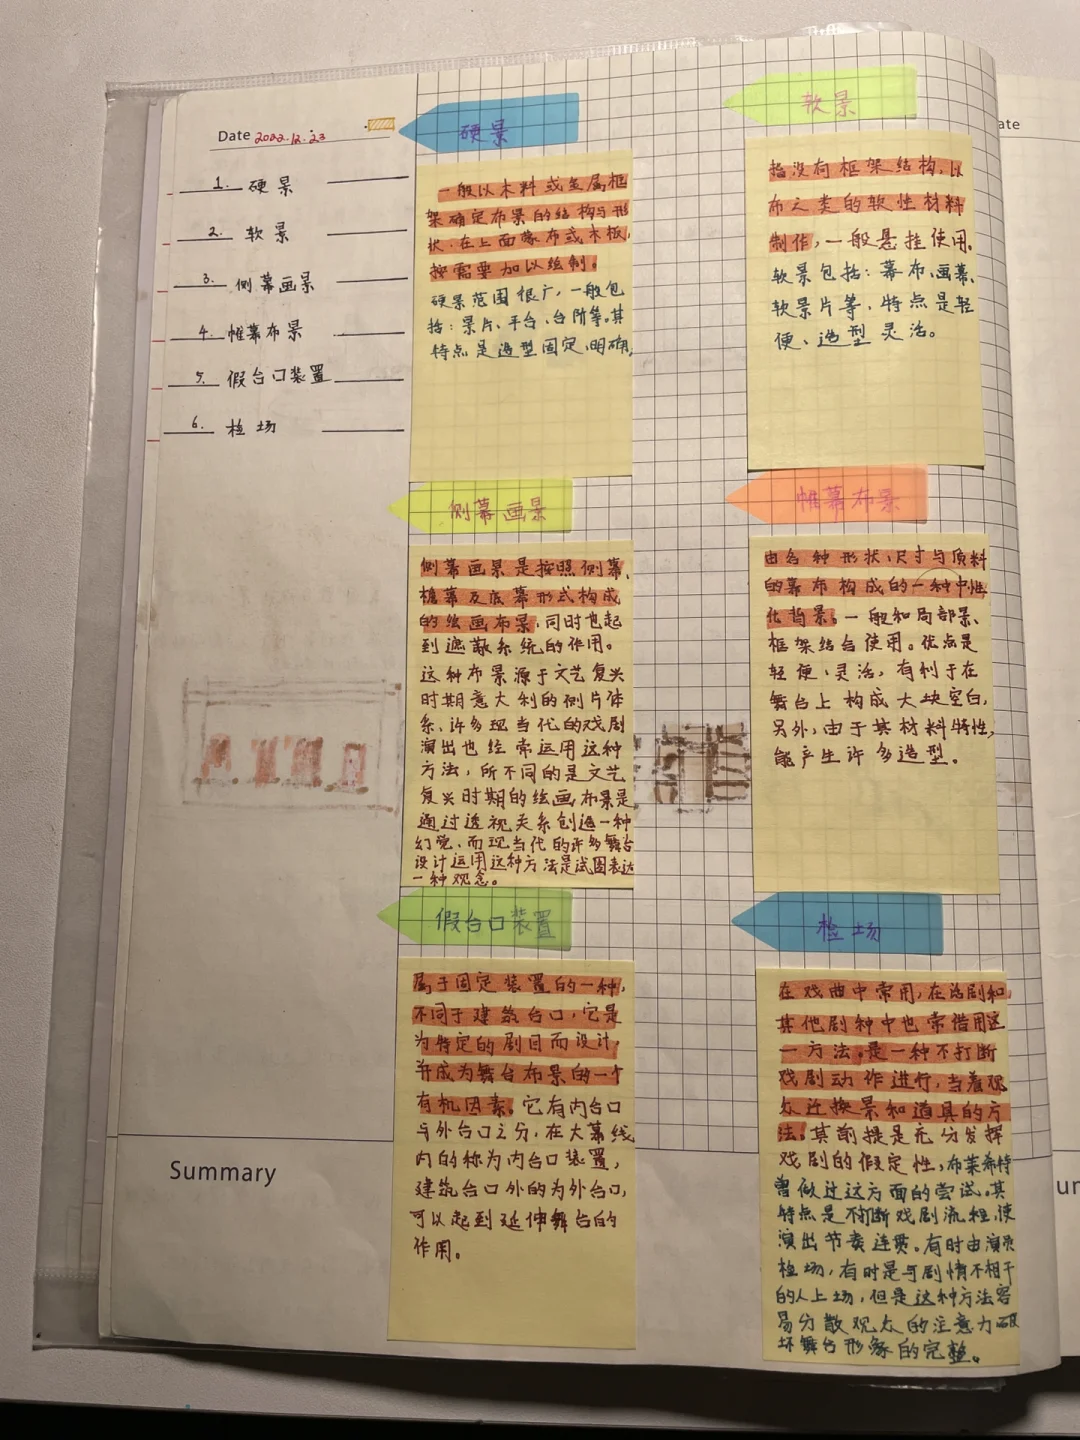 Date 2022.12.23
1. 硬景
2. 软景
3. 侧幕画景
4. 帷幕布景
5. 假台口装置
6. 检场
硬景
一般以木料或金属框
架确定布景的结构与形
状,在上面蒙布或木板,
按需要加以绘制。
硬景范围很广,一般包
括:景片、平台、台阶等。其
特点是造型固定、明确,
软景
指没有框架结构,以
布之类的软性材料
制作,一般悬挂使用。
软景包括:幕布、画幕、
软景片等,特点是轻
便、造型灵活。
侧幕画景
侧幕画景是按照侧幕、
檐幕及底幕形式构成
的绘画布景,同时也起
到遮蔽系统的作用。
这种布景源于文艺复兴
时期意大利的侧片体
系,许多现当代的戏剧
演出也经常运用这种
方法,所不同的是文艺
复兴时期的绘画布景是
通过透视关系创造一种
幻觉,而现当代的许多舞台
设计运用这种方法是试图表达
一种观念。
帷幕布景
由各种形状、尺寸与质料
的幕布构成的一种中性
化背景。一般和局部景、
框架结合使用。优点是
轻便、灵活,有利于在
舞台上构成大块空白,
另外,由于其材料特性,
能产生许多造型。
假台口装置
属于固定装置的一种,
不同于建筑台口,它是
为特定的剧目而设计,
并成为舞台布景的一个
有机因素。它有内台口
与外台口之分,在大幕线
内的称为内台口装置,
建筑台口外的为外台口,
可以起到延伸舞台的
作用。
检场
在戏曲中常用,在话剧和
其他剧种中也常借用这
一方法。是一种不打断
戏剧动作进行,当着观
众迁换景和道具的方
法。其前提是充分发挥
戏剧的假定性,布莱希特
曾做过这方面的尝试。其
特点是不断戏剧流程,使
演出节奏连贯。有时由演员
检场,有时是与剧情不相干
的人上场,但是这种方法容
易分散观众的注意力破
坏舞台形象的完整。
Summary
ate